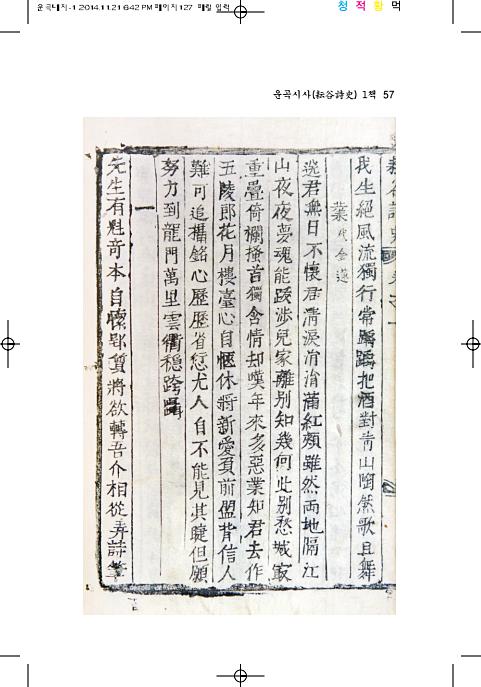 운곡내지-1 2014.11.21 6:42 PM 페이지127
청 적 황 먹
운곡시사(耘谷詩史) 1책 57
耘谷詩史
我生絕風流獨行常踽踽把酒對靑山陶然歌且舞
業
送君無日不懷君淸淚涓涓滿紅頰雖然兩地隔江
山夜夜夢魂能跋涉兒家離別知幾何此別愁城寂
重疊倚欄搔首獨含情却嘆年來多惡業知君去作
五陵郎花月樓臺心自愜休將新愛負前盟背信人
難可追攝銘心歷歷省愆尤人自不能見其睫但願
努力到龍門萬里雲衢穩跨躡
一
先生有魁奇本自懷郢質將欲轉吾介相從弄詩筆